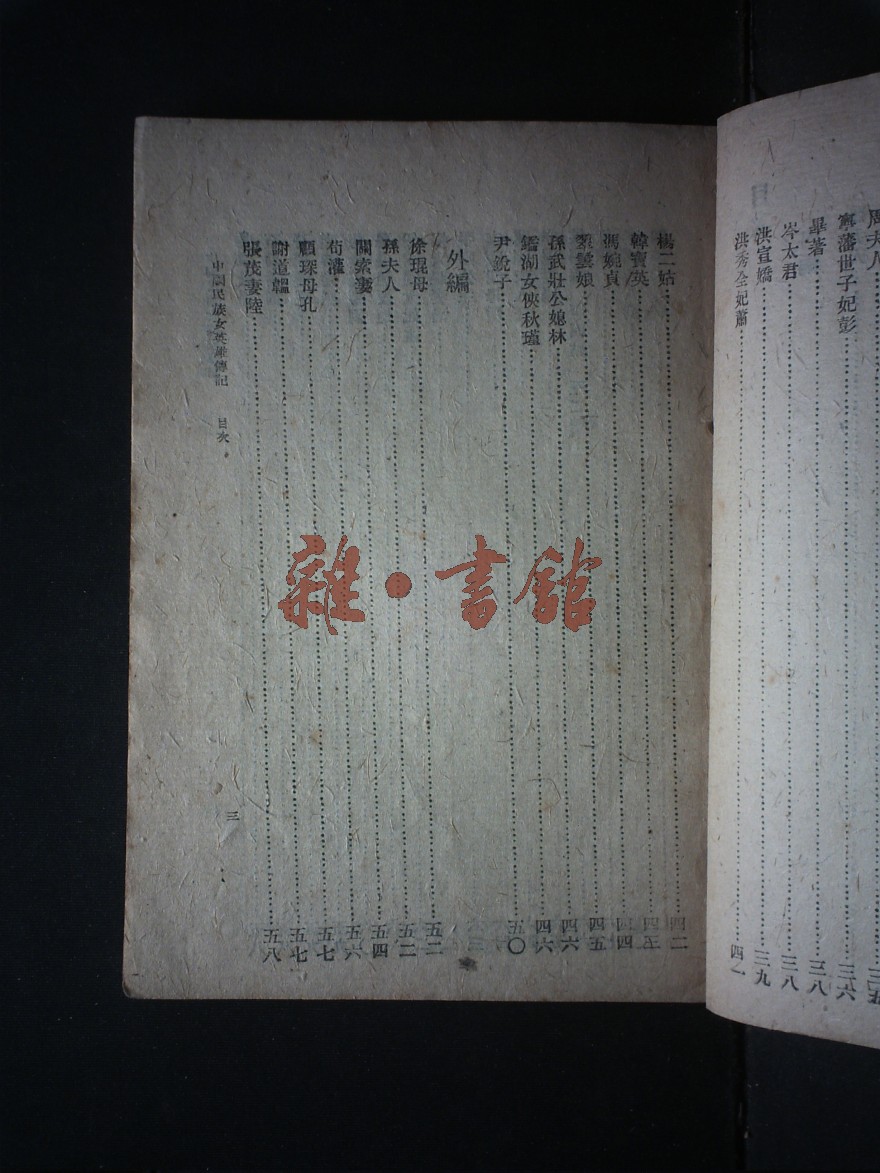 周夫人 三五
寗藩世子妃彭 三六
畢著 三八
岑太君 三八
洪宣嬌 三九
洪秀全妃蕭 四一
楊二姑 四二
韓寶英 四三
馮婉貞 四四
翠雲娘 四五
孫武壯公媳林 四六
鑑湖女俠秋瑾 四六
尹銳子 五〇
外編
徐琨母 五二
孫夫人 五二
關索妻 五四
荀灌 五六
顧琛母孔 五七
謝道韞 五七
張茂妻陸 五八
中國民族女英雄傳記 目次
三
雜·書館